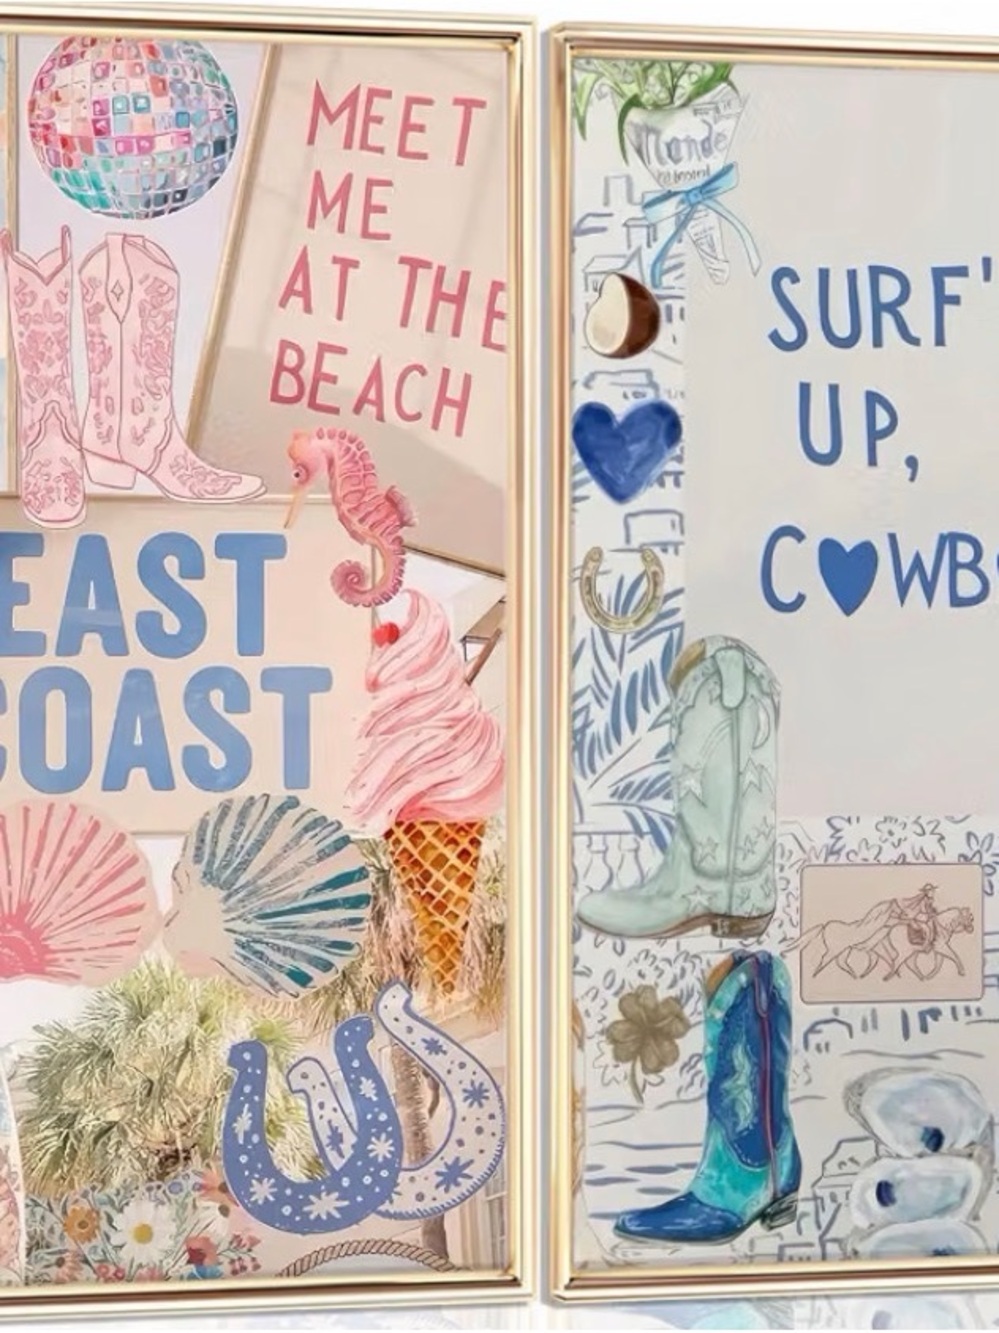 MEET
ME
AT THE
BEACH
EAST
COAST
SURF'
UP,
C♥WB